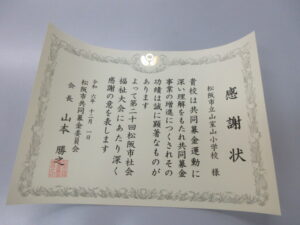 感謝状
松阪市立山室山小学校 様
貴校は共同募金運動に
深い理解をもたれ共同募金
事業の増進につくされその
功績は誠に顕著なものが
あります
よって第二十回松阪市社会
福祉大会にあたり深く
感謝の意を表します
令和六年十二月一日
松阪市共同募金委員会
会長 山本 勝之